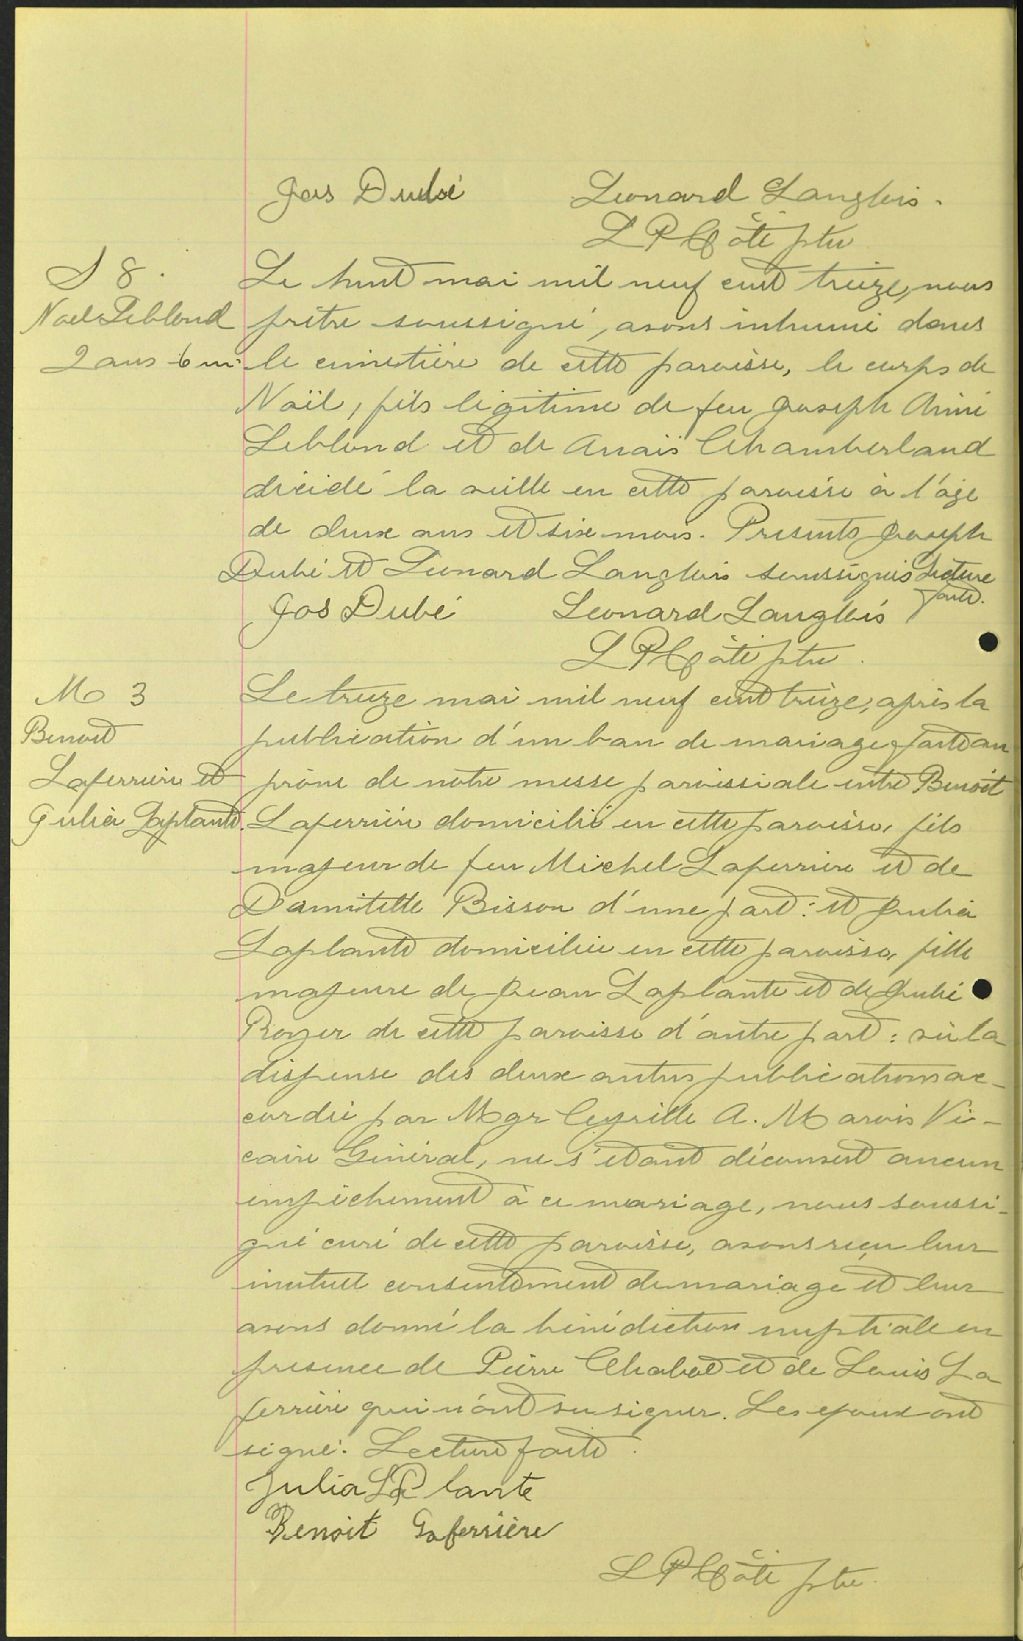 Jos Dubé Leonard Langlois.
L P Côté ptre
S 8.
Noel Leblond
2 ans 6 m
Le huit mai mil neuf cent treize, nous
prêtre soussigné, avons inhumé dans
le cimetière de cette paroisse, le corps de
Noël, fils légitime de feu Joseph Aimé
Leblond et de Anaïs Chamberland
décédé la veille en cette paroisse à l'âge
de deux ans et six mois. Presents Joseph
Dubé et Léonard Langlois soussignés Lecture
faite.
Jos Dubé Leonard Langlois
L P Côté ptre.
M 3
Benoit
Laferrière et
Julia Laplante.
Le treize mai mil neuf cent treize, après la
publication d'un ban de mariage faite au
prône de notre messe paroissiale entre Benoît
Laferrière domicilié en cette paroisse, fils
majeur de feu Michel Laferrière et de
Damitille Bisson d'une part: et Julia
Laplante domiciliée en cette paroisse, fille
majeure de Jean Laplante et de Julie
Royer de cette paroisse d'autre part: vu la
dispense des deux autres publications ac-
cordée par Mgr Cyrille A. Marois Vi-
caire Général, ne s'étant découvert aucun
empêchement à ce mariage, nous soussi-
gné curé de cette paroisse, avons reçu leur
mutuel consentement de mariage et leur
avons donné la bénédiction nuptiale en
presence de Pierre Chabot et de Louis La
ferrière qui n'ont su signer. Les epoux ont
signé. Lecture faite.
Julia LaPlante
Benoit Laferrière
L P Côté ptre.